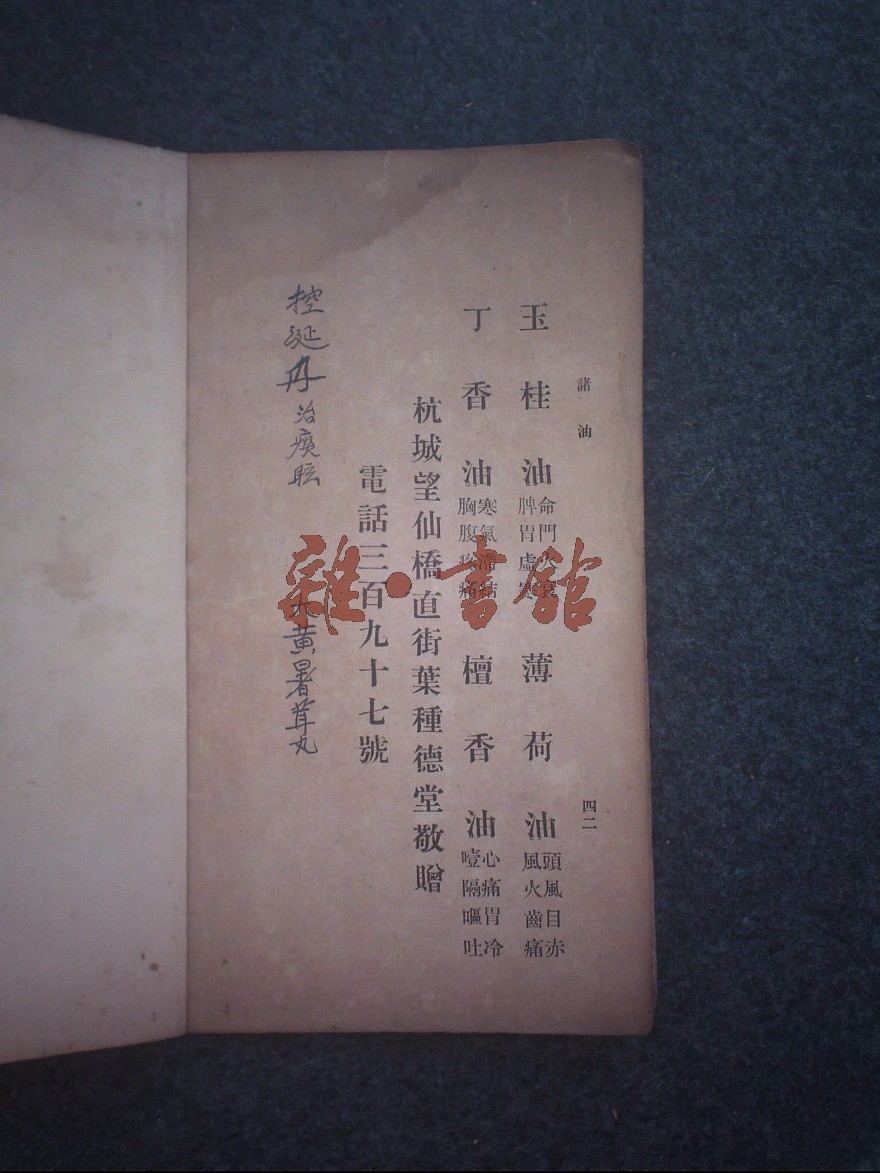 諸油 四二
玉桂油 命門火衰 脾胃虛寒 薄荷油 頭風目赤 風火齒痛
丁香油 寒氣滯結 胸腹疼痛 檀香油 心痛胃冷 噎隔嘔吐
杭城望仙橋直街葉種德堂敬贈
電話三百九十七號
控涎丹治痰眩 大黃暑茸丸
雜·書館